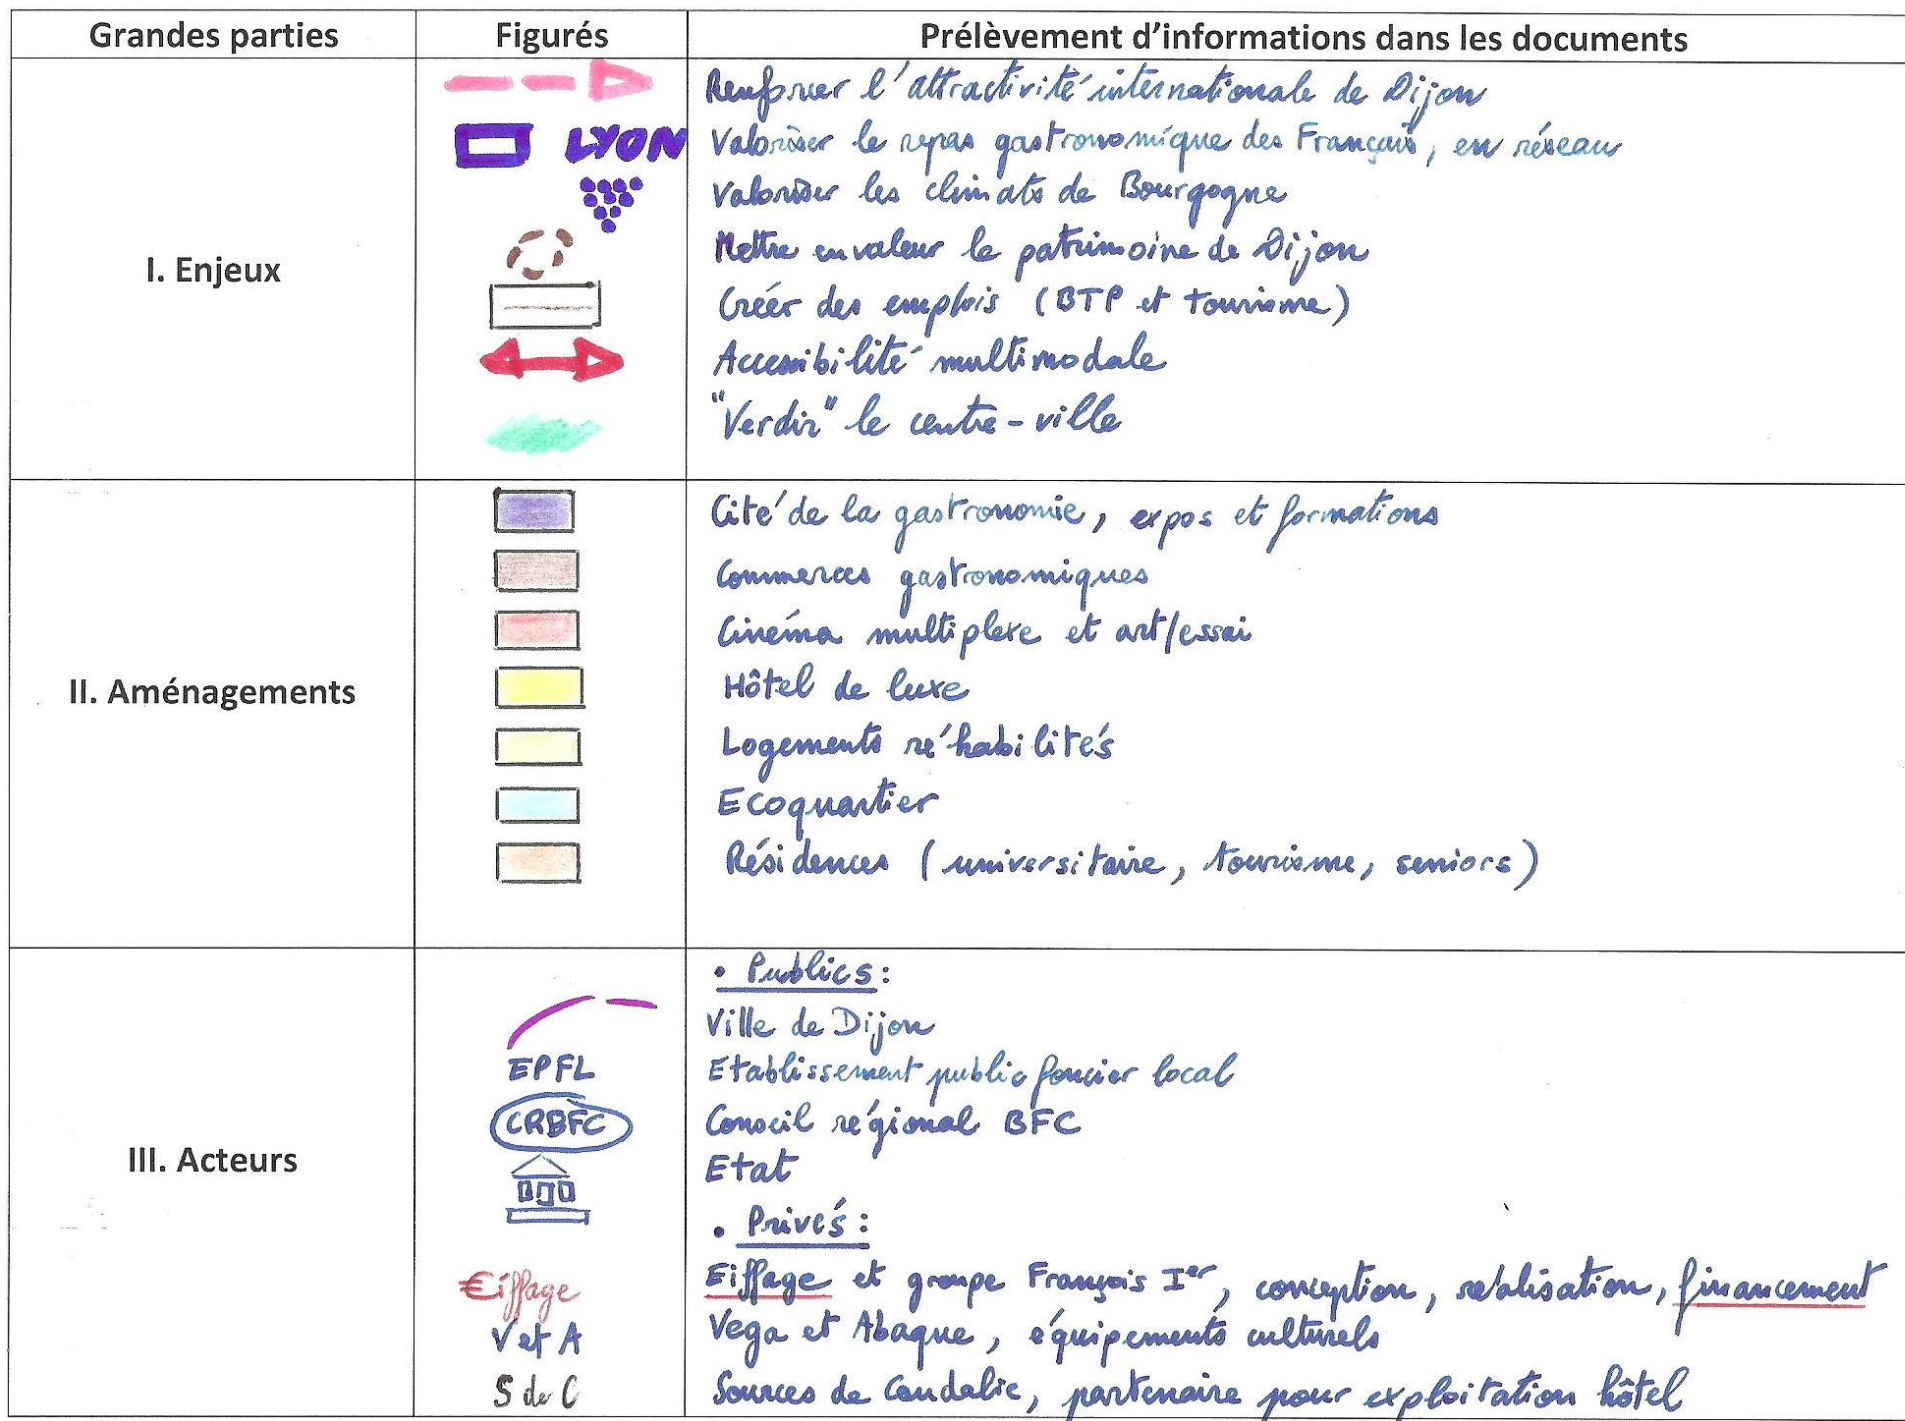 Grandes parties Figurés Prélèvement d'informations dans les documents
Renforcer l'attractivité internationale de Dijon
LYON Valoriser le repas gastronomique des Français, en réseau
Valoriser les climats de Bourgogne
Mettre en valeur le patrimoine de Dijon
I. Enjeux
Créer des emplois (BTP et tourisme)
Accessibilité multimodale
"Verdir" le centre-ville
Cité de la gastronomie, expos et formations
Commerces gastronomiques
Cinéma multiplexe et art/essai
II. Aménagements Hôtel de luxe
Logements réhabilités
Ecoquartier
Résidences (universitaire, tourisme, seniors)
• Publics :
Ville de Dijon
EPFL Etablissement public foncier local
CRBFC Conseil régional BFC
III. Acteurs Etat
• Privés :
€iffage Eiffage et groupe François Ier, conception, réalisation, financement
V et A Vega et Abaque, équipements culturels
S de C Sources de Caudalie, partenaire pour exploitation hôtel